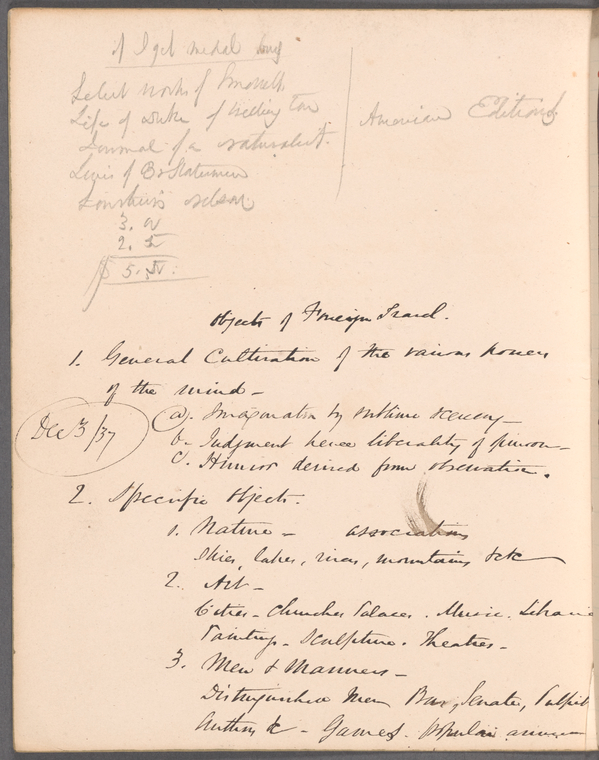 if I get medal buy
Select works of Smollett
Life of Duke of Wellington
Journal of a naturalist.
Lives of Br Statesmen
American Editions
3.
2.
$ 5.
Objects of Foreign Travel.
1. General Cultivation of the various powers
of the mind –
Dec 3/37
a. Imagination by sublime scenery –
b. Judgment hence liberality of
c. Humor derived from observation.
2. Specific Objects.
1. Nature – associations
Skies, lakes, rivers, mountains &c &c
2. Art –
Cities – Churches Palaces. Music.
Paintings – Sculpture. Theatres –
3. Men & Manners –
Distinguished Men Bar, Senate, Pulpit
Authors &c – Games. popular